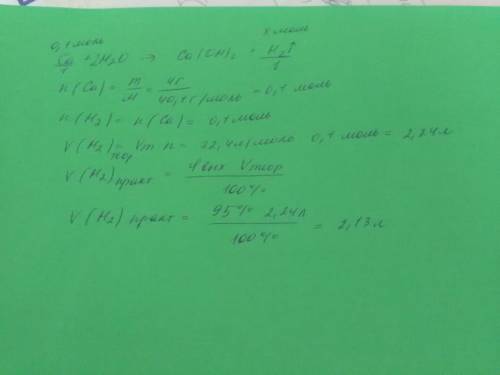 0,1 моль x моль
Ca + 2H₂O → Ca(OH)₂ + H₂↑
1 1
n(Ca) = m/M = 4г/40,1 г/моль = 0,1 моль
n(H₂) = n(Ca) = 0,1 моль
V(H₂)теор = Vm n = 22,4л/моль 0,1 моль = 2,24л
V(H₂)практ = φвых Vтеор / 100%
V(H₂)практ = 95% 2,24л / 100% = 2,13л